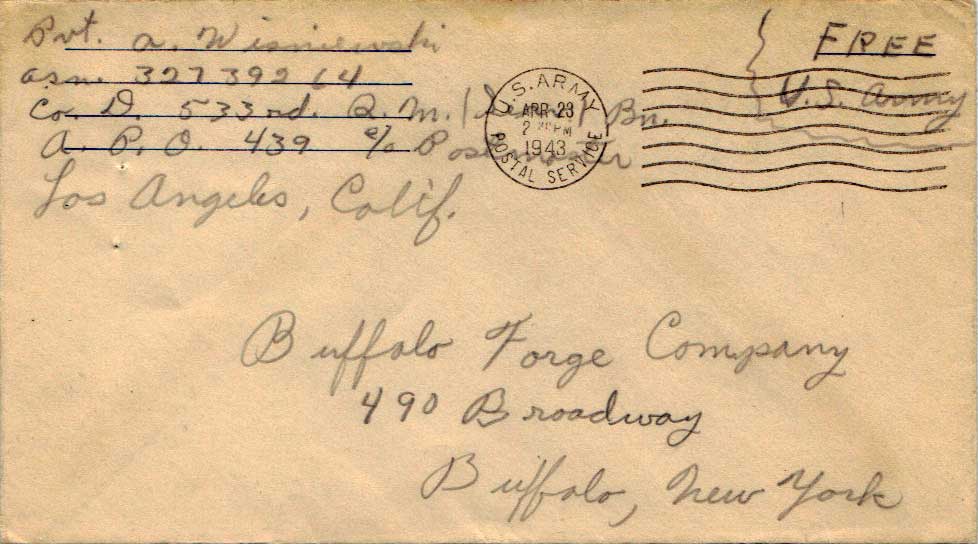 Pvt. A. Wisniewski
asn. 32739264
Co. D. 533rd. Q. M. Bn.
A. P. O. 439 c/o Postmaster
Los Angeles, Calif.
U.S. ARMY
APR 23
PM
1943
POSTAL SERVICE
FREE
U.S. Army
Buffalo Forge Company
490 Broadway
Buffalo, New York